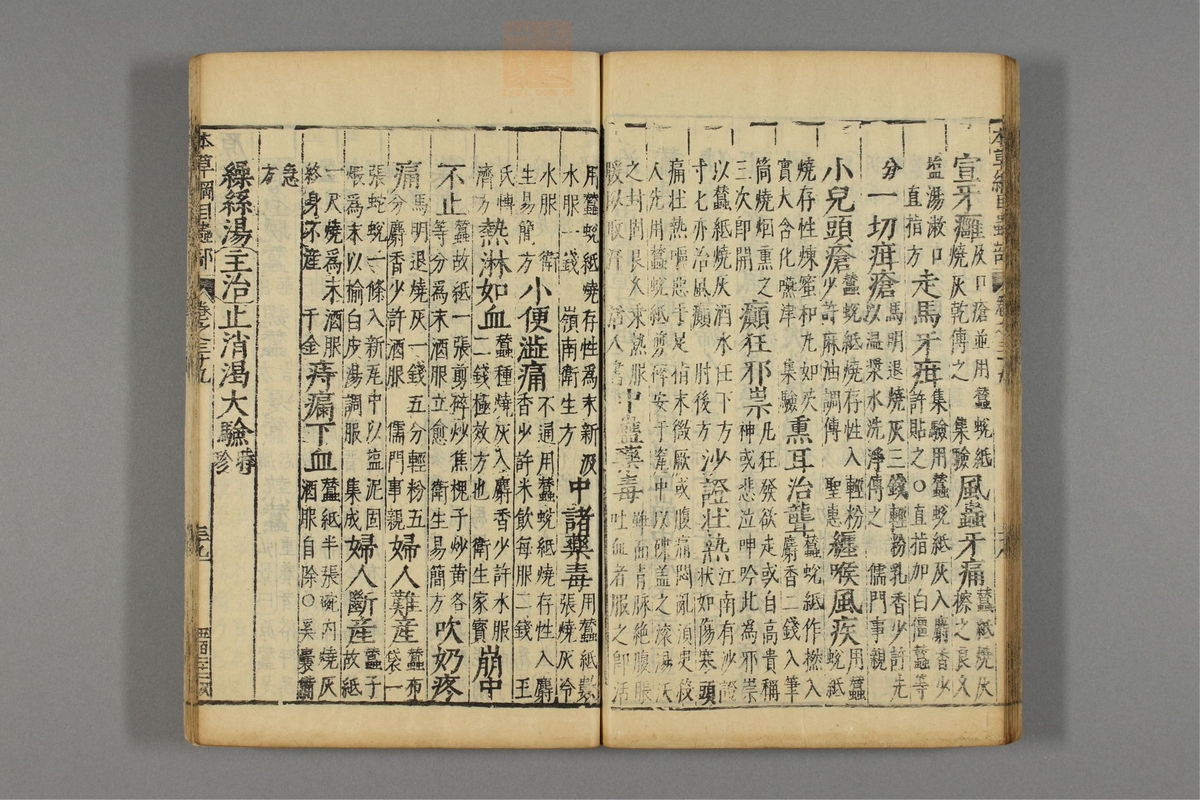 本草綱目蟲部 卷之三十九
宣牙癰 及口瘡並用蠶蛻紙燒灰乾傅之 集驗 風蟲牙痛 蠶紙燒灰擦之良久
鹽湯漱口直指方 走馬牙疳 集驗用蠶蛻紙灰入麝香少許貼之○直指加白僵蠶等
分 一切疳瘡 馬明退燒灰三錢輕粉乳香少許先以溫漿水洗淨傅之 儒門事親
小兒頭瘡 蠶蛻紙燒存性入輕粉少許麻油調傅 聖惠 纏喉風疾 用蠶蛻紙
燒存性煉蜜和丸如芡實大含化嚥津 集驗 熏耳治聾 蠶蛻紙作撚入麝香二錢入筆
筒燒烟熏之三次即開 癲狂邪祟 凡狂發欲走或自高貴稱神或悲泣呻吟此為邪祟
以蠶紙燒灰酒水任下方寸匕亦治風癲 肘後方 沙證壯熱 江南有沙證狀如傷寒頭
痛壯熱嘔惡手足指末微厥或腹痛悶亂須臾殺人先用蠶蛻紙剪碎安于瓶中以碟蓋之滾湯沃
之封固良久乘熱服暖以取汗 活人書 中蠱藥毒 雖面青脉絕腹脹吐血者服之即活
用蠶蛻紙燒存性為末新汲水服一錢 嶺南衛生方 中諸藥毒 用蠶紙數張燒灰冷
水服 衛生易簡方 小便澁痛 不通用蠶蛻紙燒存性入麝香少許米飲每服二錢 王
氏博濟方 熱淋如血 蠶種燒灰入麝香少許水服二錢極效方也 衛生家寶 崩中
不止 蠶故紙一張剪碎炒焦槐子炒黃各等分為末酒服立愈 衛生易簡方 吹奶疼
痛 馬明退燒灰一錢五分輕粉五分麝香少許酒服 儒門事親 婦人難產 蠶布袋一
張蛇蛻一條入新瓦中以鹽泥固煅為末以榆白皮湯調服 集成 婦人斷產 蠶子故紙
一尺燒為末酒服終身不產 千金 痔漏下血 蠶紙半張碗內燒灰酒服自除○奚囊備
急方
繰絲湯主治止消渴大驗 時珍
本草綱目蟲部 卷之三十九